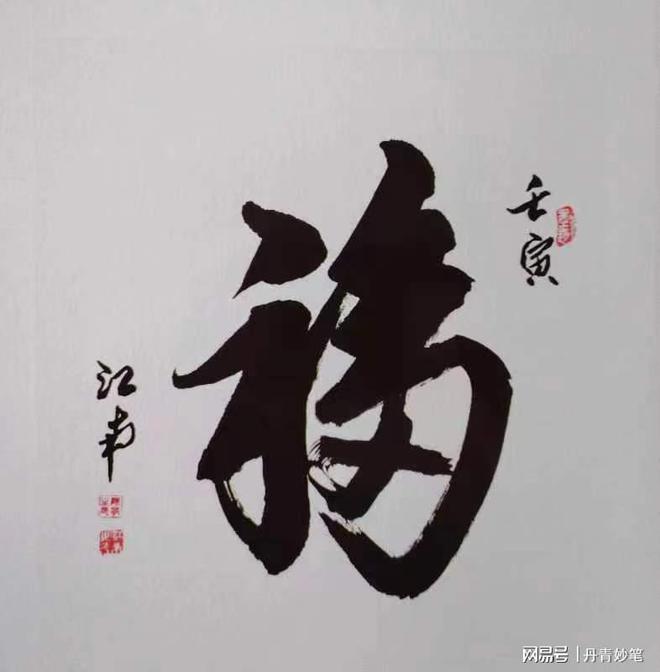 壬寅
福
江南
网易号 | 丹青妙笔